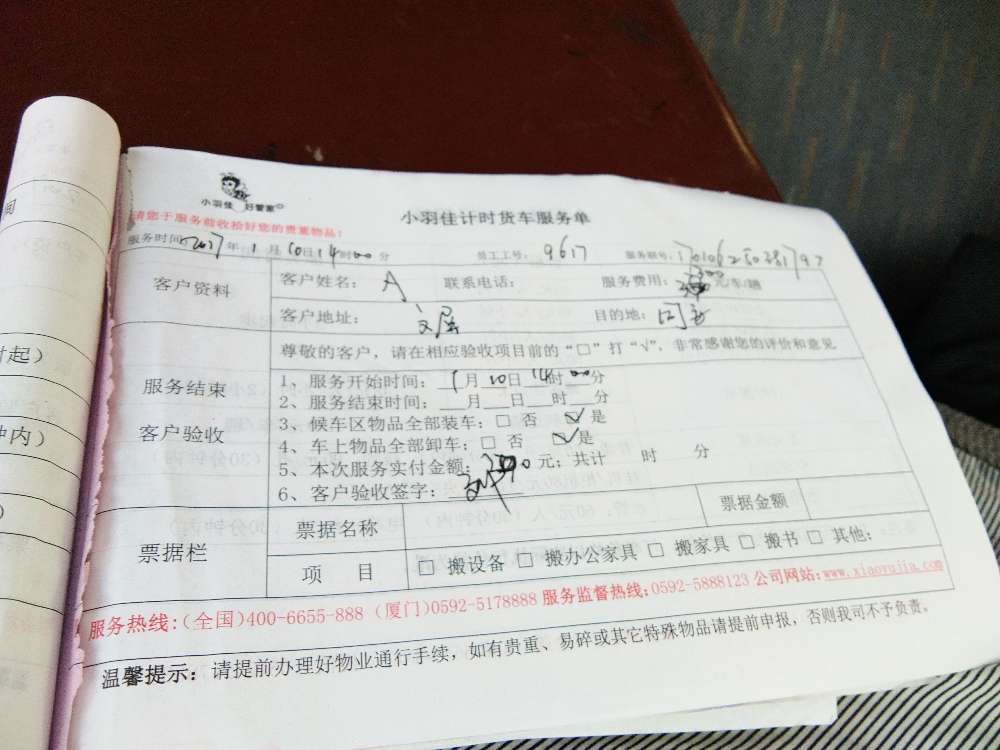 小羽佳 好管家
小羽佳计时货车服务单
请您于服务前收拾好您的贵重物品！
服务时间 2017 年 1 月 10 日 14 时 00 分 员工工号： 9617 服务联号：
客户资料 客户姓名： A 联系电话： 服务费用： 元/车/趟
客户地址： 目的地： 同安
尊敬的客户，请在相应验收项目前的“□”打“√”，非常感谢您的评价和意见
服务结束
客户验收
1、服务开始时间： 1 月 10 日 14 时 00 分
2、服务结束时间：___月___日___时___分
3、候车区物品全部装车：□ 否 ☑ 是
4、车上物品全部卸车：□ 否 ☑ 是
5、本次服务实付金额： 元；共计 时 分
6、客户验收签字：
票据栏 票据名称 票据金额
项 目 □ 搬设备 □ 搬办公家具 □ 搬家具 □ 搬书 □ 其他：
服务热线：(全国)400-6655-888 (厦门)0592-5178888 服务监督热线：0592-5888123 公司网站：www.xiaoyujia.com
温馨提示：请提前办理好物业通行手续，如有贵重、易碎或其它特殊物品请提前申报，否则我司不予负责。